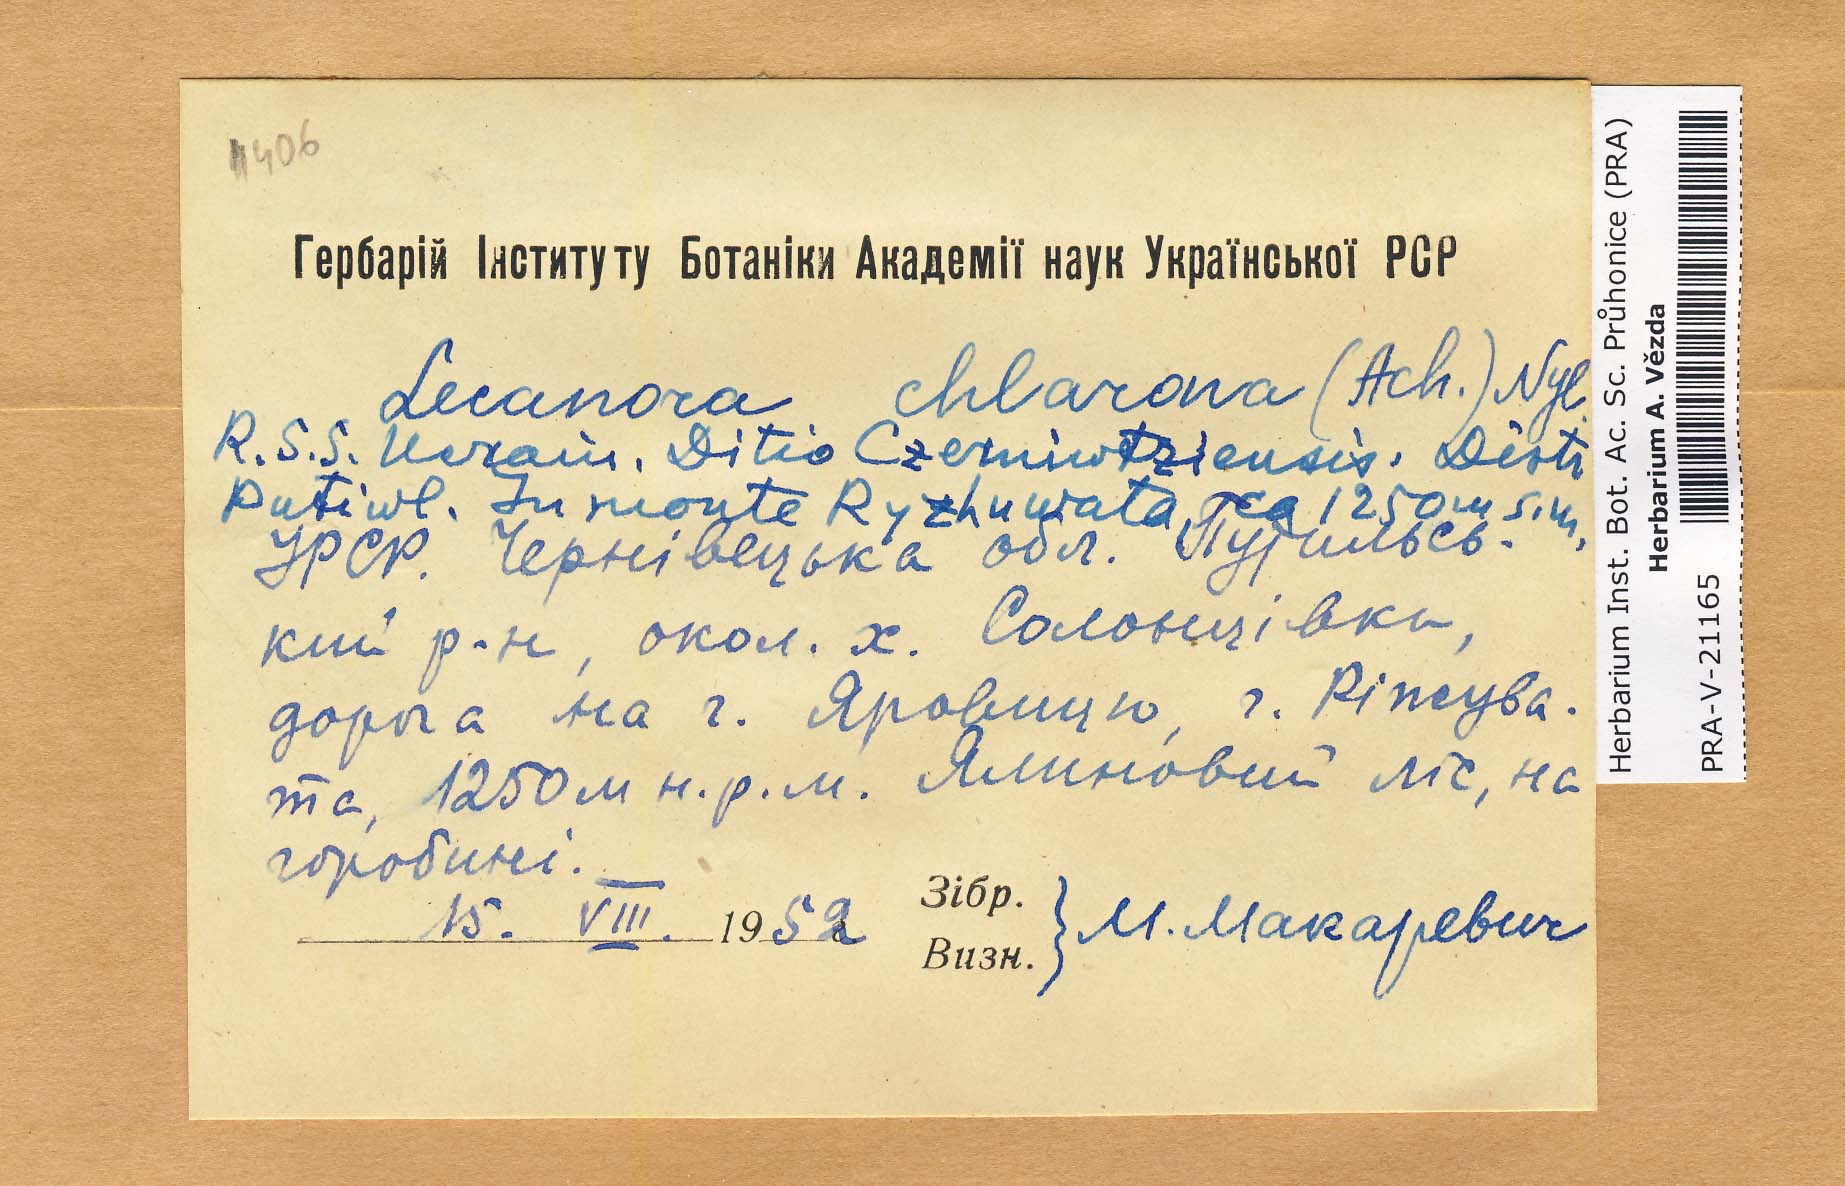 11406
Гербарій Інституту Ботаніки Академії наук Української РСР
Lecanora chlarona (Ach.) Nyl.
R.S.S. Ucrain. Ditio Czerniwtziensis. Distr.
Putiwl. In monte Ryzhuwata, ca 1250 m s.m.
УРСР. Чернівецька обл. Путильсь-
кий р-н, окол. х. Солонцівки,
дорога на г. Яровицю, г. Ріжува-
та, 1250 м н.р.м. Ялиновий ліс, на
горобині.
15. VIII. 1952
Зібр.
Визн.
} М. Макаревич
Herbarium Inst. Bot. Ac. Sc. Průhonice (PRA)
Herbarium A. Vězda
PRA-V-21165